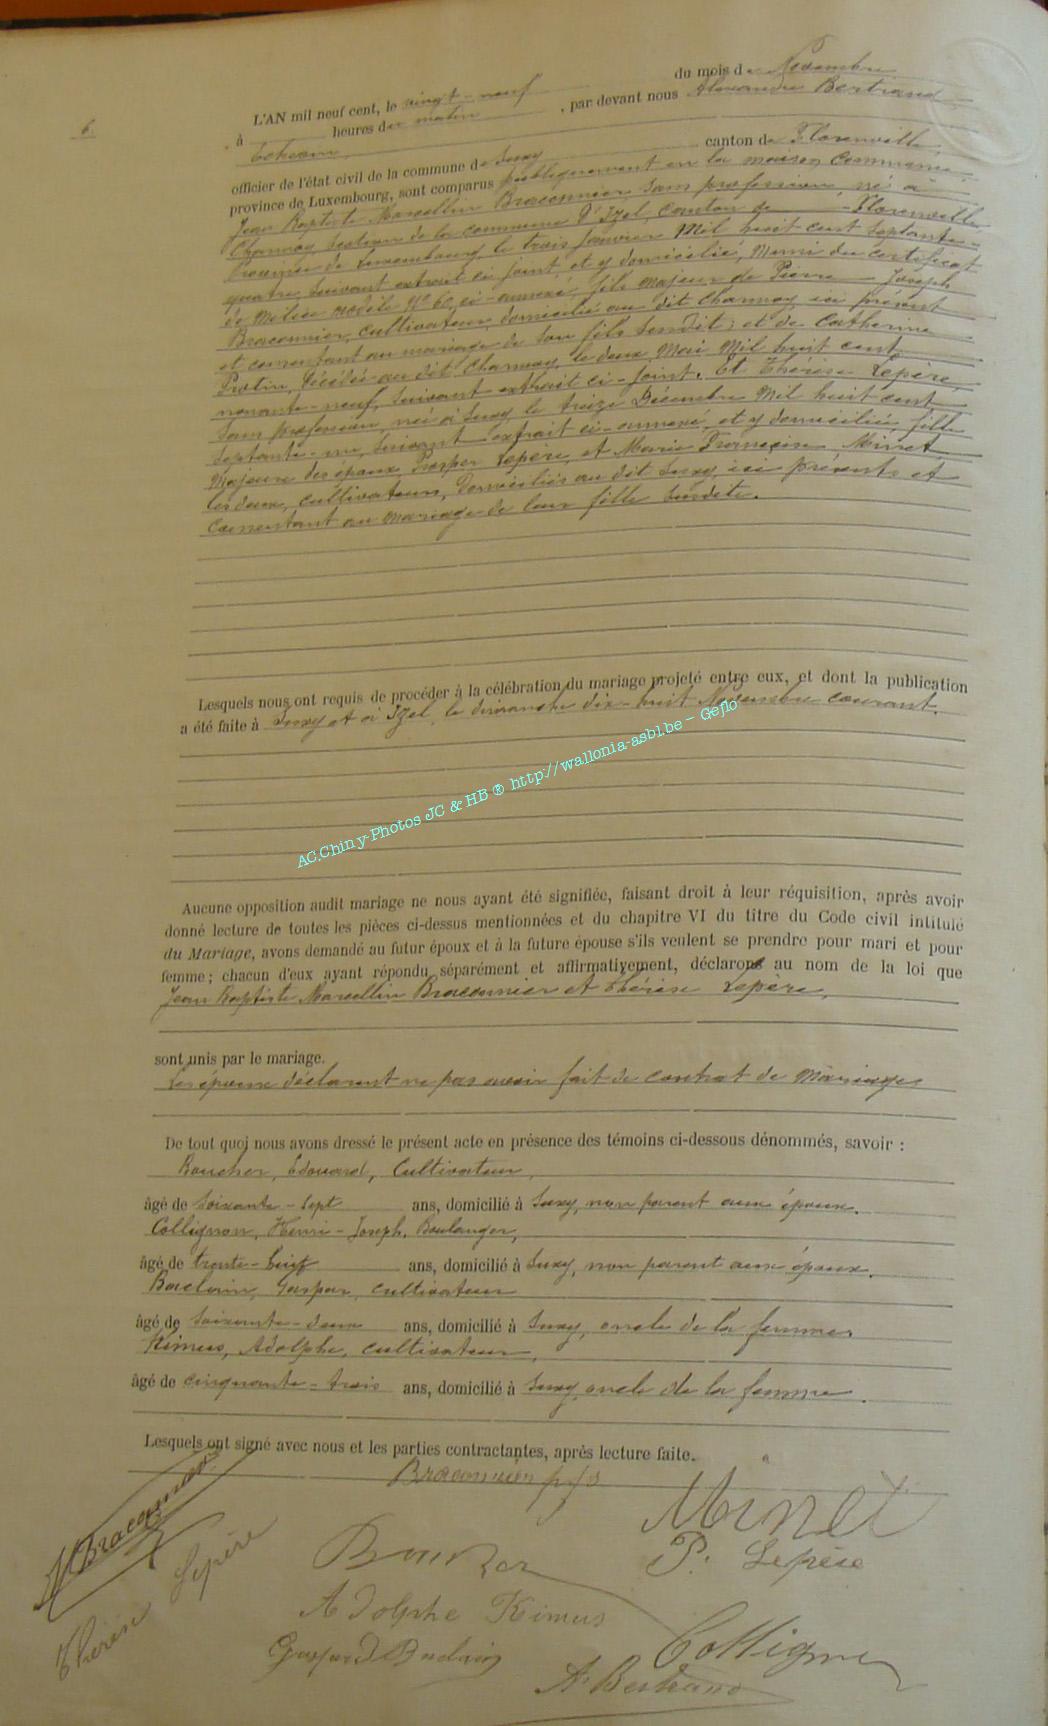 6
L'AN mil neuf cent, le vingt-neuf du mois de Novembre
à heures du matin, par devant nous Alexandre Bertrand
Echevin,
officier de l'état civil de la commune de Suxy canton de Florenville,
province de Luxembourg, sont comparus publiquement en la maison commune,
Jean Baptiste Marcellin Braconnier, sans profession, né à
Charmoy, section de la commune d'Izel, canton de Florenville
Province de Luxembourg, le trois Janvier Mil huit cent septante-
quatre, suivant extrait ci-joint, et y domicilié, Muni du certificat
de Milice modèle N° 60 ci-annexé, fils majeur de Pierre Joseph
Braconnier, cultivateur, domicilié au dit Charmoy, ici présent
et consentant au mariage de son fils susdit, et de Catherine
décédée au dit Charmoy, le deux Mai Mil huit cent
nonante-neuf, suivant extrait ci-joint. Et Thérèse Lepère,
Sans profession, née à Suxy, le treize Décembre Mil huit cent
septante-un, suivant extrait ci-annexé, et y domiciliée, fille
Majeure des époux Prosper Lepère, et Marie Françoise Minet
les deux, cultivateurs, Domiciliés au dit Suxy, ici présents et
Consentant au mariage de leur fille susdite.
Lesquels nous ont requis de procéder à la célébration du mariage projeté entre eux, et dont la publication
a été faite à Suxy et à Izel, le dimanche dix-huit Novembre courant.
AC.Chiny-Photos JC & HB ® http://wallonia-asbl.be - Geflo
Aucune opposition audit mariage ne nous ayant été signifiée, faisant droit à leur réquisition, après avoir
donné lecture de toutes les pièces ci-dessus mentionnées et du chapitre VI du titre du Code civil intitulé
du Mariage, avons demandé au futur époux et à la future épouse s'ils veulent se prendre pour mari et pour
femme ; chacun d'eux ayant répondu séparément et affirmativement, déclarons au nom de la loi que
Jean Baptiste Marcellin Braconnier et Thérèse Lepère,
sont unis par le mariage.
Les époux déclarent ne pas avoir fait de contrat de Mariages
De tout quoi nous avons dressé le présent acte en présence des témoins ci-dessous dénommés, savoir :
Boucher, Edouard, Cultivateur,
âgé de Soixante-sept ans, domicilié à Suxy, non parent aux époux.
Collignon, Henri-Joseph, Boulanger,
âgé de trente-huit ans, domicilié à Suxy, non parent aux époux.
Gaspar, cultivateur
âgé de Soixante-deux ans, domicilié à Suxy, oncle de la femme
Kimus, Adolphe, cultivateur,
âgé de cinquante-trois ans, domicilié à Suxy, oncle de la femme.
Lesquels ont signé avec nous et les parties contractantes, après lecture faite.
Braconnier
Braconnier
Minet
Thérèse Lepère
P. Lepère
Adolphe Kimus
Collignon
A. Bertrand